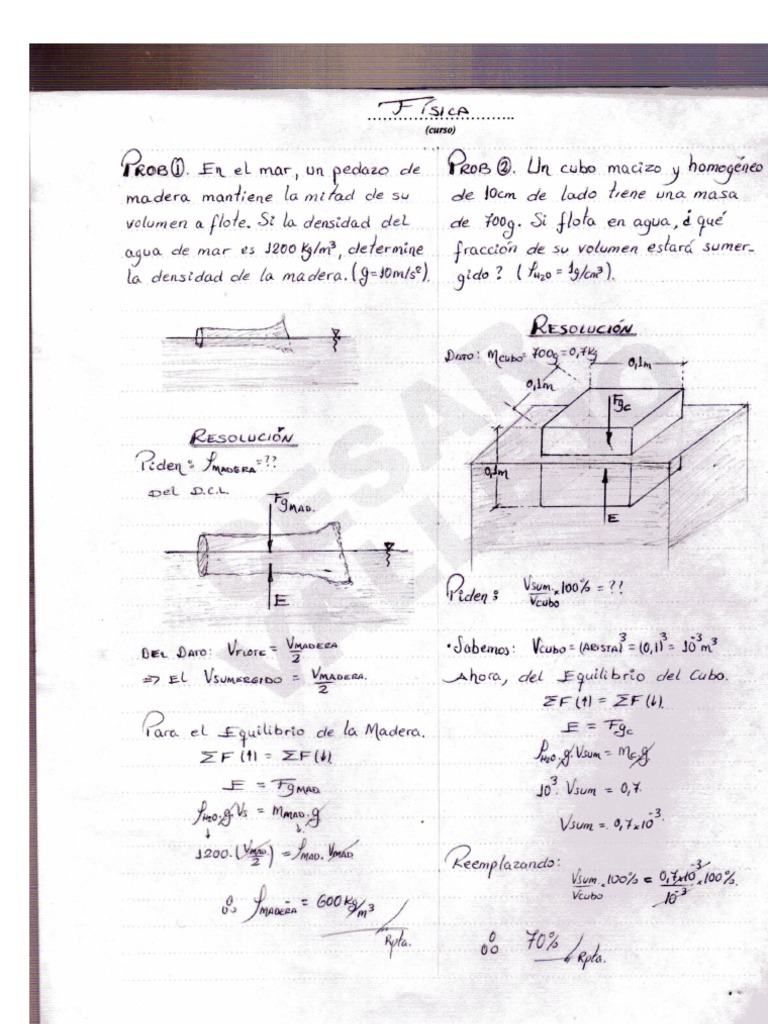 FÍSICA
(curso)
PROB ①. En el mar, un pedazo de
madera mantiene la mitad de su
volumen a flote. Si la densidad del
agua de mar es 1200 Kg/m³, determine
la densidad de la madera. (g=10m/s²).
RESOLUCIÓN
Piden: ρMADERA = ??
DEL D.C.L.
FgMAD.
E
DEL DATO: VFLOTE = VMADERA/2
⇒ EL VSUMERGIDO = VMADERA/2.
Para el Equilibrio de la Madera.
ΣF(↑) = ΣF(↓)
E = FgMAD
ρH2O.g.Vs = mMAD.g
1200.(VMAD/2) = ρMAD.VMAD
∴ ρMADERA = 600 Kg/m³
Rpta.
PROB ②. Un cubo macizo y homogéneo
de 10cm de lado tiene una masa
de 700g. Si flota en agua, ¿qué
fracción de su volumen estará sumer-
gido? (ρH2O = 1g/cm³).
RESOLUCIÓN
DATO: MCUBO = 700g = 0,7Kg
0,1m
0,1m
Fgc
0,1m
E
Piden: Vsum./Vcubo × 100% = ??
• Sabemos: VCUBO = (ARISTA)³ = (0,1)³ = 10⁻³m³
Ahora, del Equilibrio del Cubo.
ΣF(↑) = ΣF(↓).
E = Fgc
ρH2O.g.Vsum = mc.g
10³.Vsum = 0,7.
Vsum = 0,7×10⁻³
Reemplazando:
Vsum/Vcubo × 100% = 0,7×10⁻³/10⁻³ × 100%.
∴ 70%
Rpta.
CESAR
VALLEJO